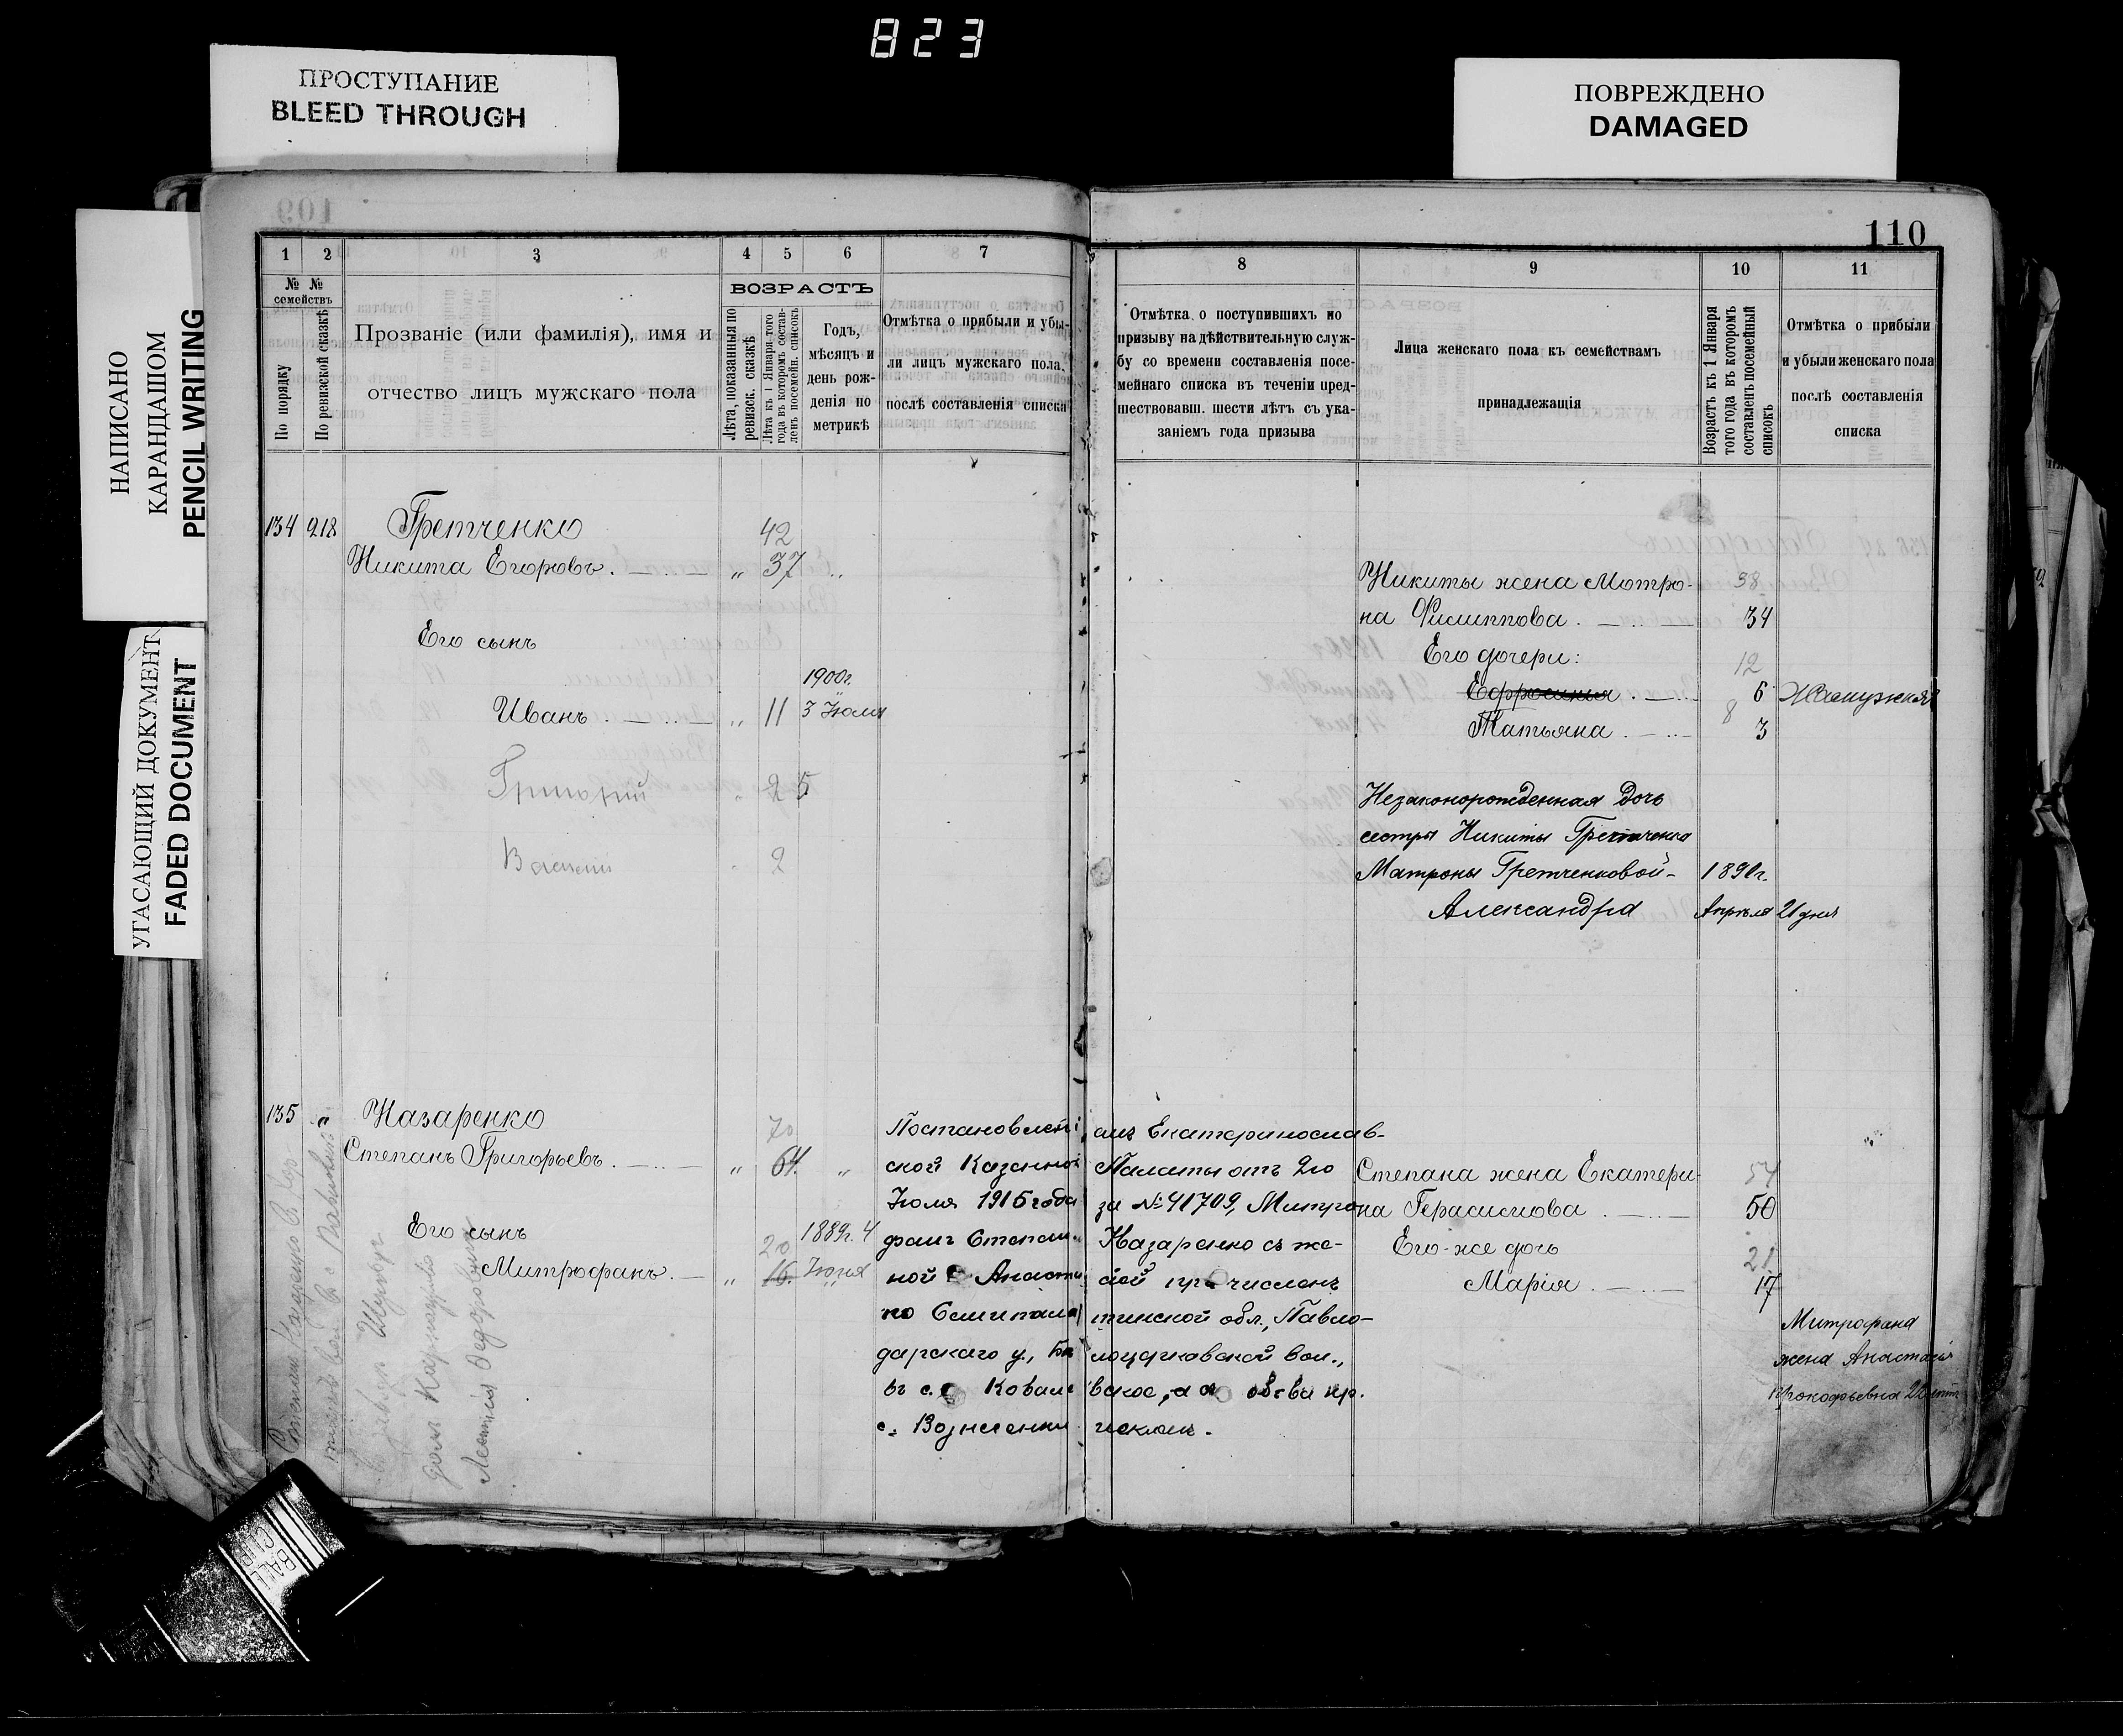 823
ПРОСТУПАНИЕ
BLEED THROUGH
ПОВРЕЖДЕНО
DAMAGED
НАПИСАНО
КАРАНДАШОМ
PENCIL WRITING
УГАСАЮЩИЙ ДОКУМЕНТ
FADED DOCUMENT
109
1 2 3 4 5 6 7
№ № семействъ
По порядку
По ревизской сказкѣ
Прозваніе (или фамилія), имя и
отчество лицъ мужскаго пола
ВОЗРАСТЪ
Лѣта, показанныя по
ревизск. сказкѣ
Лѣта къ 1 Января того
года въ которомъ состав-
ленъ посемейн. списокъ
Годъ,
мѣсяцъ и
день рож-
денія по
метрикѣ
Отмѣтка о прибыли и убы-
ли лицъ мужскаго пола,
послѣ составленія списка
134 218 Гретченко 42
Никита Егоровъ. „ 37 „
Его сынъ
1900г.
Иванъ „ 11 3 Іюля
Григорій „ 2 5
Василій 2
135 „ Назаренко 70
Степанъ Григорьевъ. „ 64. „
Его сынъ 20 1889г. 4
Митрофанъ. „ 16. Іюня
110
8 9 10 11
Отмѣтка о поступившихъ по
призыву на дѣйствительную служ-
бу со времени составленія посе-
мейнаго списка въ теченіи пред-
шествовавш. шести лѣтъ съ ука-
заніемъ года призыва
Лица женскаго пола къ семействамъ
принадлежащія
Возрастъ къ 1 Января
того года въ которомъ
составленъ посемейный
списокъ
Отмѣтка о прибыли
и убыли женскаго пола
послѣ составленія
списка
Никиты жена Мотро- 38
на Филиппова. 34
Его дочери: 12
Ефросинья. 6 Замужняя
8
Татьяна. 3
Незаконорожденная дочь
сестры Никиты Гретченко
Матроны Гретченковой- 1890г.
Александра Апрѣля 21 дня
Постановленіемъ Екатеринослав-
ской Казенной Палаты отъ 2го
Іюля 1915 года за № 41709, Митро-
фанъ Степан. Назаренко съ же-
ной Анаст причисленъ
по Семипалатинской обл., Павло-
дарскаго у.,
въ с.
с. Вознесенки
Степана жена Екатери- 54
на Герасимова. 50
Его-же дочь 21
Марія. 17
Митрофана
жена Анастасія
Прокофьевна